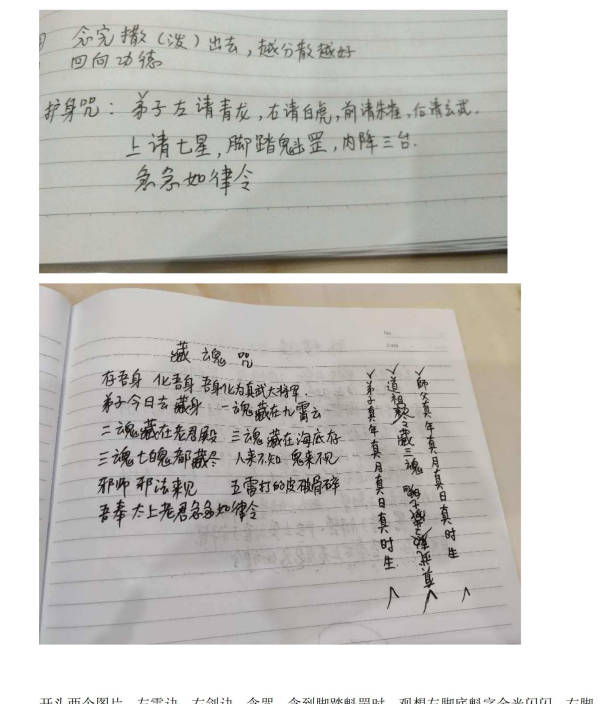 念完撒(泼)出去,越分散越好
回向功德
护身咒:弟子左请青龙,右请白虎,前请朱雀,后请玄武.
上请七星,脚踏魁罡,内降三台.
急急如律令
藏魂咒
存吾身 化吾身 吾身化为真武大将军.
弟子今日去藏身 一魂藏在九霄云
二魂藏在老君殿 三魂藏在海底存
三魂七白鬼都藏尽 人来不知 鬼来不见
邪师邪法来见 五雷打的皮破骨碎
吾奉太上老君急急如律令
师父真年真月真日真时生
道祖 藏三魂
弟子真年真月真日真时生
开头两个图片,左雷边,右剑边,念咒,念到脚踏魁罡时,观想左脚底魁字金光闪闪,右脚